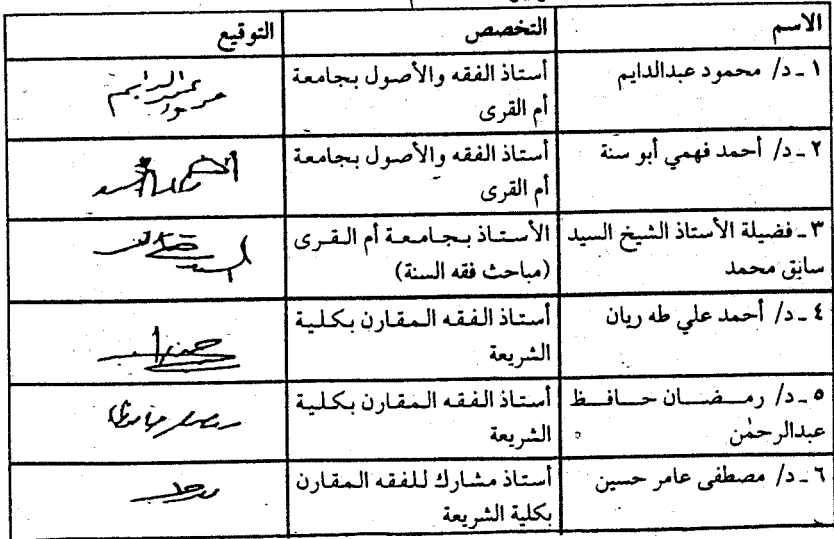 الاسم التخصص التوقيع
١ ـ د/ محمود عبدالدايم أستاذ الفقه والأصول بجامعة
أم القرى
٢ ـ د/ أحمد فهمي أبو سنة أستاذ الفقه والأصول بجامعة
أم القرى
٣ ـ فضيلة الأستاذ الشيخ السيد الأستاذ بجامعة أم القرى
سابق محمد (مباحث فقه السنة)
٤ ـ د/ أحمد علي طه ريان أستاذ الفقه المقارن بكلية
الشريعة
٥ ـ د/ رمضان حافظ أستاذ الفقه المقارن بكلية
عبدالرحمٰن الشريعة
٦ ـ د/ مصطفى عامر حسين أستاذ مشارك للفقه المقارن
بكلية الشريعة